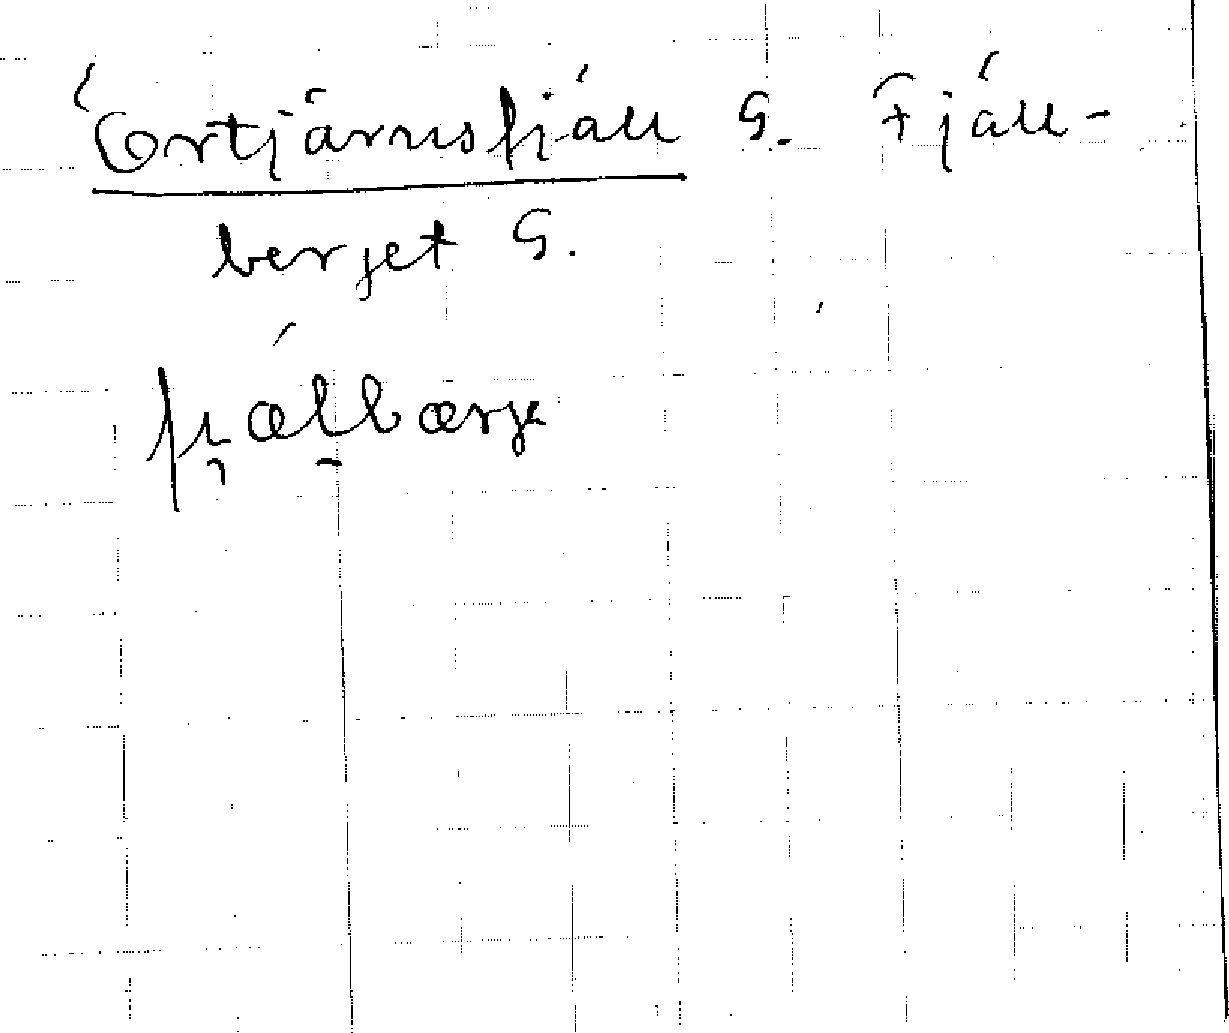 Örtjärnsfjäll G. Fjäll-
berget G.
fjælbærje